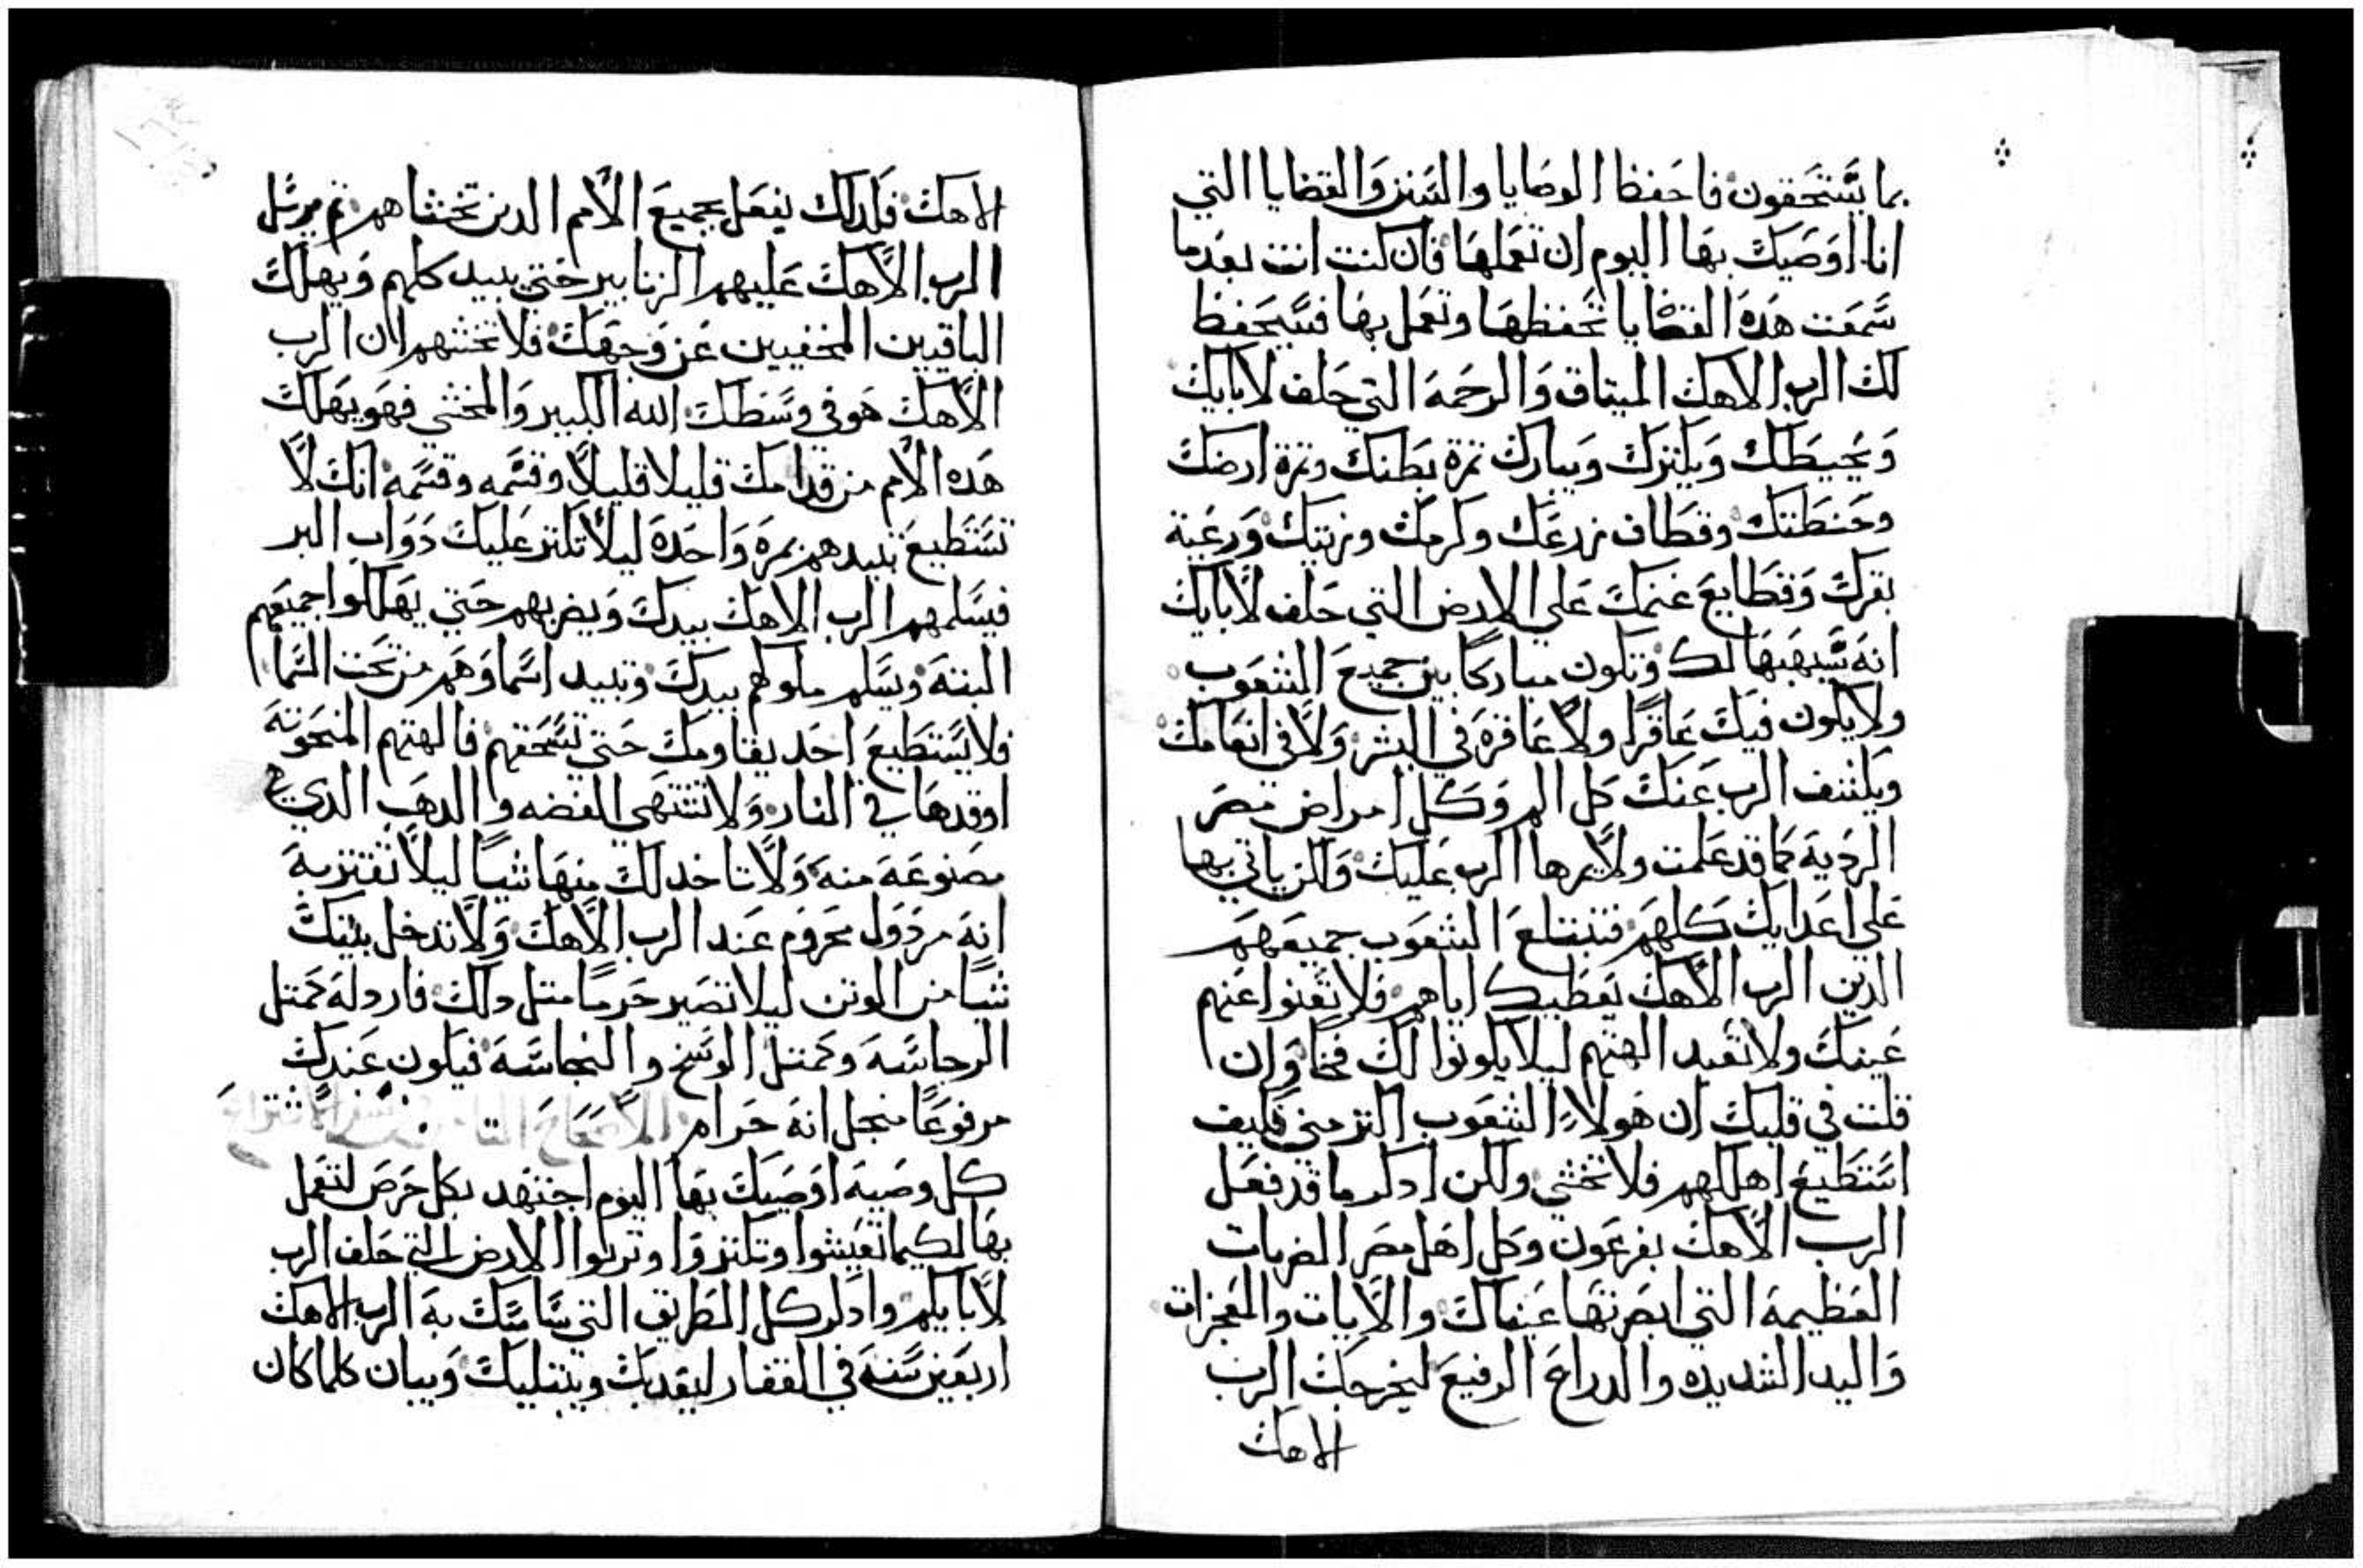 بما يستحقون فاحفظ الوصايا والسنن والقضايا التي
انا اوصيك بها اليوم ان تعملها فان كنت انت بعدما
سمعت هده القضايا تحفظها وتعمل بها فسيحفظ
لك الرب الاهك الميتاق والرحمة التي حلف لابايك
ويحيطك ويكترك ويبارك تمرة بطنك وتمرة ارضك
وحنطتك وقطاف زرعك وكرمك وزيتك ورعية
بقرك وقطايع غنمك علي الارض التي حلف لابايك
انه سيهبها لك وتكون مباركا بين جميع الشعوب
ولا يكون فيك عاقرا ولا عاقرة في البشر ولا في انعامك
ويكشف الرب عنك كل الم وكل امراض مصر
الردية كما قد علمت ولا يرها الرب عليك ولكن ياتي بها
علي اعدايك كلهم فتبتلع الشعوب جميعهم
الدين الرب الاهك يعطيك اياهم فلا تعنوا عنهم
عينك ولا تعبد الهتهم ليلا يكونوا لك فخا وان
قلت في قلبك ان هولاء الشعوب اكتر مني فكيف
استطيع اهلكهم فلا تخشي ولكن ادكر ما قد فعل
الرب الاهك بفرعون وكل اهل مصر الضربات
العظيمة التي ابصرتها عيناك والايات والمعجزات
واليد الشديده والدراع الرفيع ليخرجك الرب
الاهك
الاهك فكدلك يفعل بجميع الامم الدين تخشاهم تم يرسل
الرب الاهك عليهم الزنابير حتي يبيد كلهم ويهلك
الباقيين المخفيين عن وجهك فلا تخشهم لان الرب
الاهك هو في وسطك الله الكبير والمخشي فهو يهلك
هده الامم من قدامك قليلا قليلا وقسمه وقسمه انك لا
تستطيع تبيدهم بمرة واحدة ليلا تكتر عليك دواب البر
فيسلمهم الرب الاهك بيدك ويضربهم حتي يهلكوا جميعهم
البتة ويسلم ملوكهم بيدك وتبيد اسماوهم من تحت السما
فلا يستطيع احد يقاومك حتي تسحقهم فالهتهم المنحوتة
اوقدها في النار ولا تشتهي الفضه والدهب الدي
مصنوعة منه ولا تاخد لك منها شيا ليلا تفتر به
انه مردول محروم عند الرب الاهك ولا تدخل بيتك
شيا من الوتن ليلا تصير حرما متل دلك فاردله كمتل
الرجاسة وكمتل الوسخ والنجاسة فيكون عندك
مرفوعا منجل انه حرام الاصحاح
كل وصية اوصيك بها اليوم اجتهد بكل حرص لتعمل
بها لكيما تعيشوا وتكتروا وترتوا الارض التي حلف الرب
لابايكم وادكر كل الطريق التي ساسك به الرب الاهك
اربعين سنة في القفار ليعدبك ويبتليك ويبان كلما كان